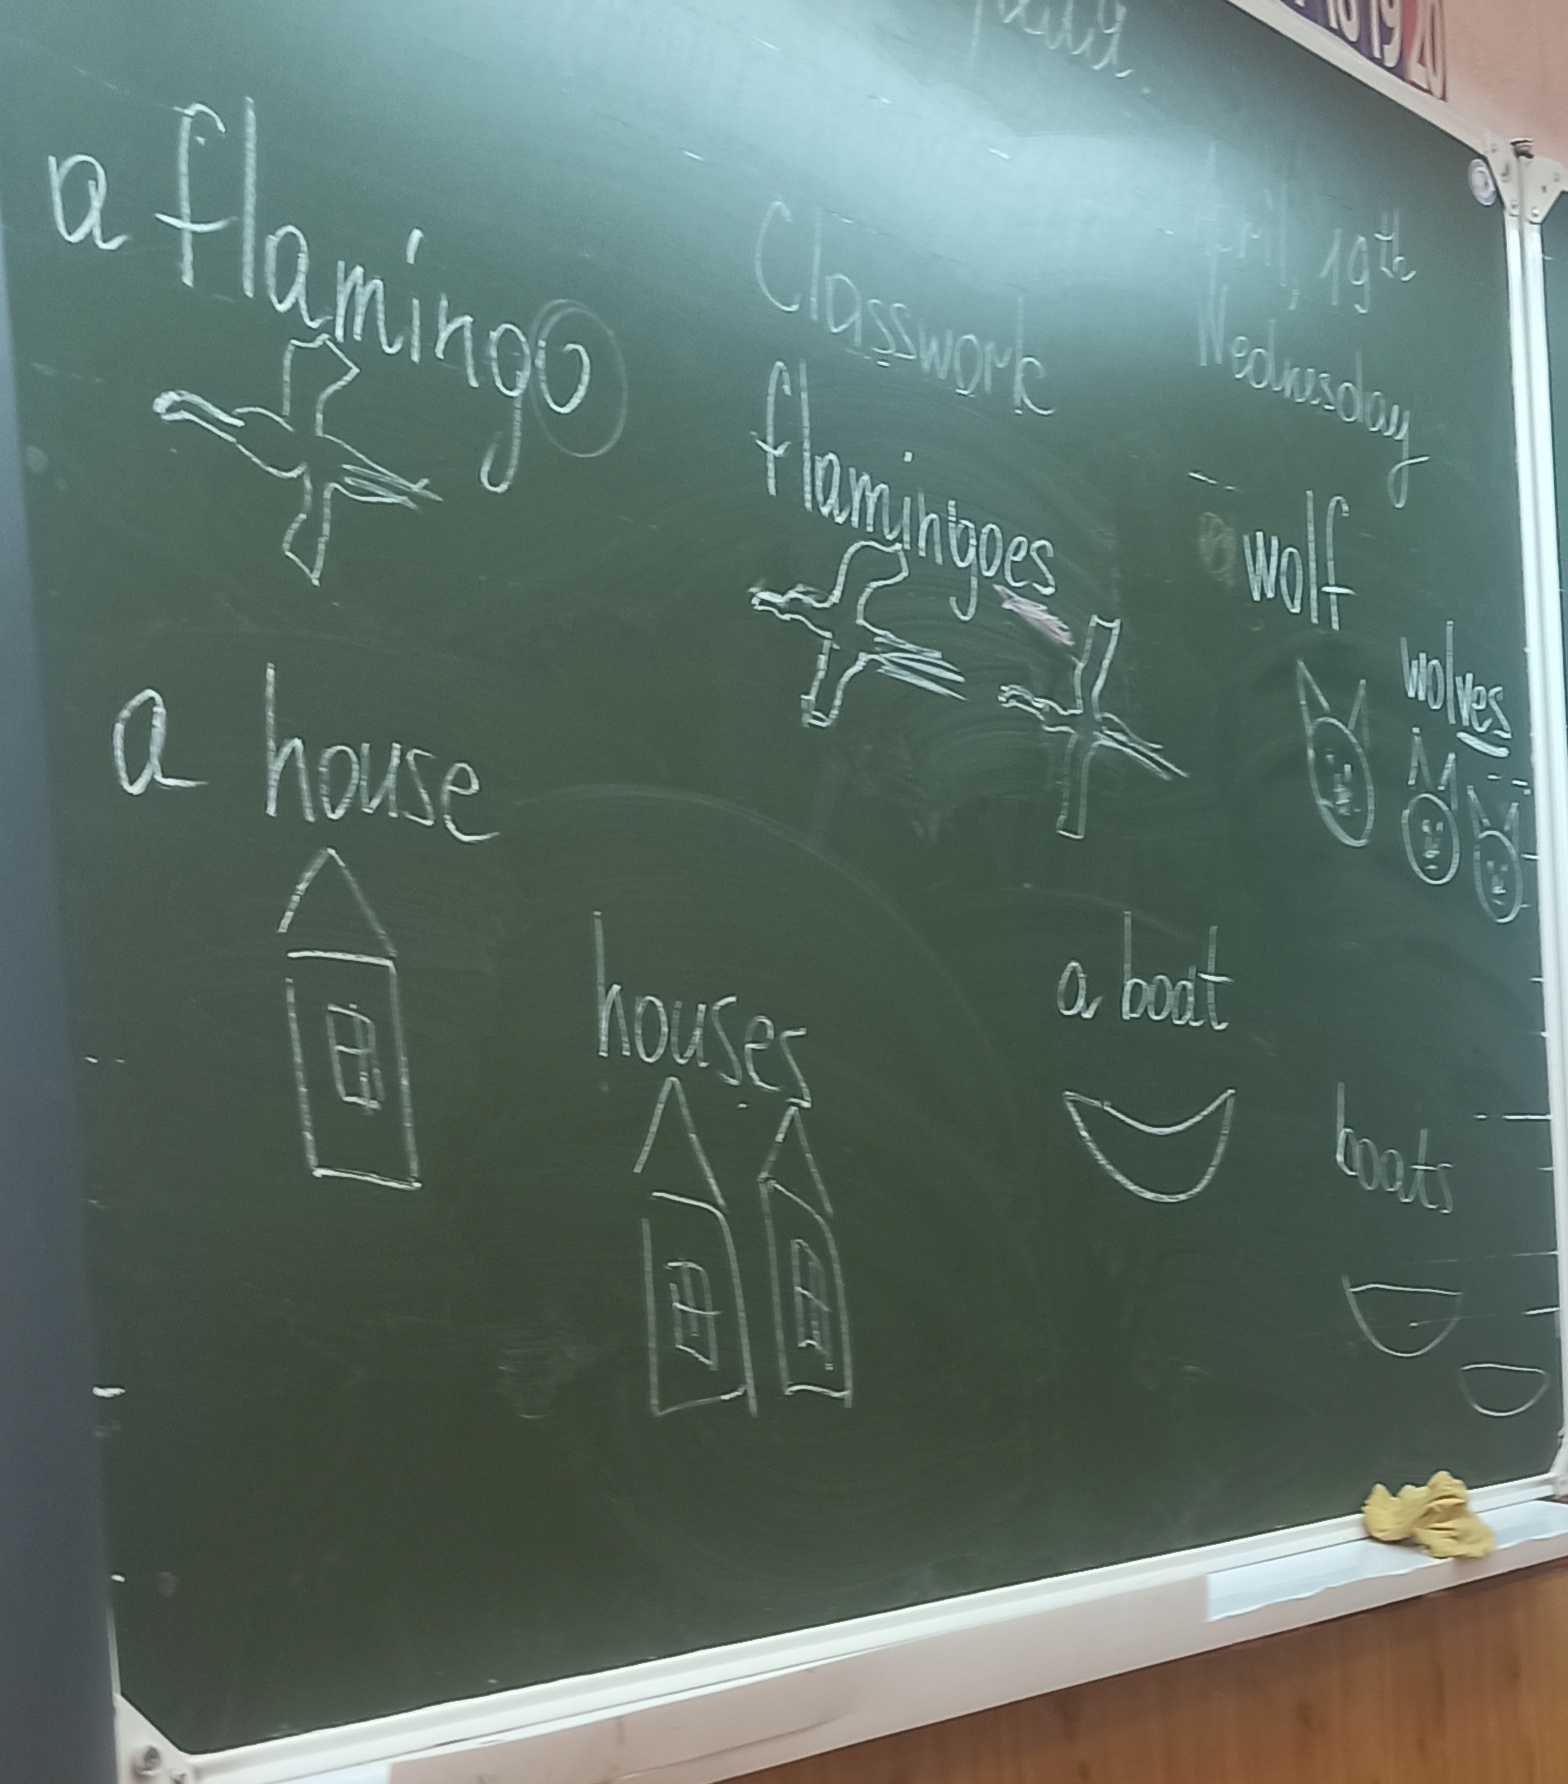 18 19 20
April, 19th
Wednesday
Classwork
a flamingo
flamingoes
a wolf
wolves
a house
houses
a boat
boats